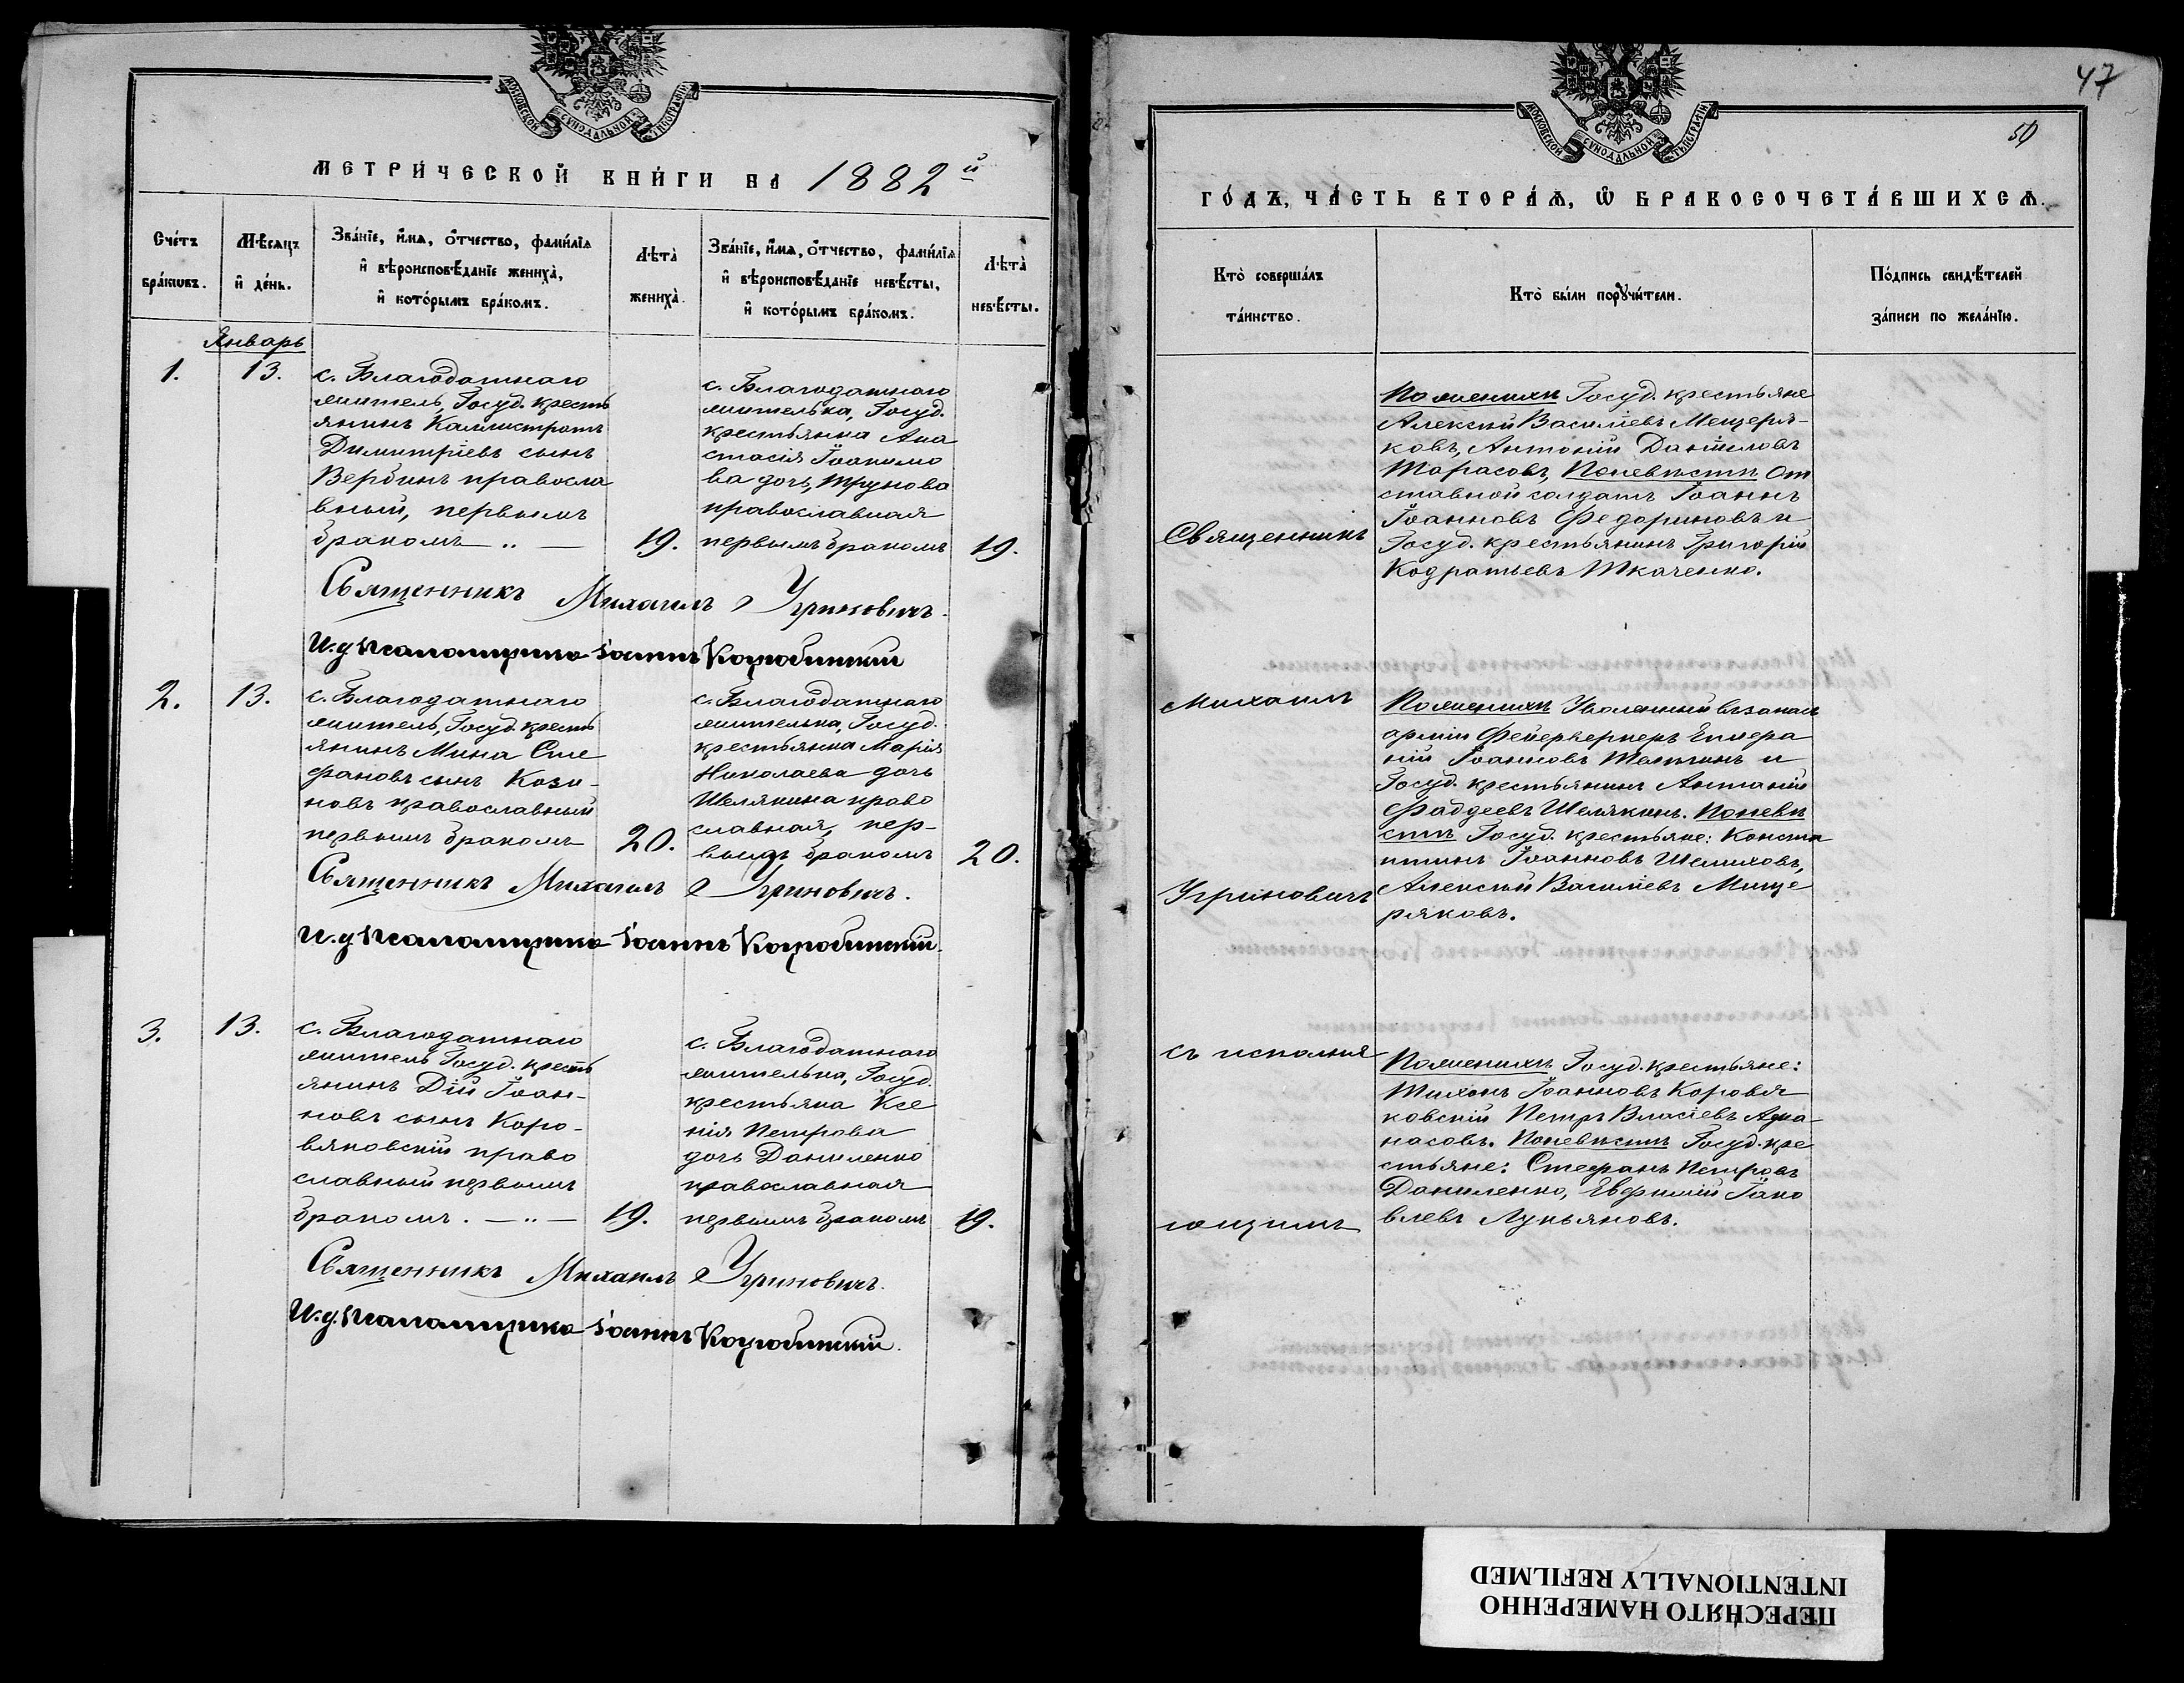 МОСКОВСКОЙ СѴНОДАЛЬНОЙ ТѴПОГРАФІИ
МЕТРИ́ЧЕСКОЙ КНИ́ГИ НА 1882й
Сче́тъ бра́кѡвъ.
Мѣ́сяцъ и҆ де́нь.
Зва́нїе, и҆́мѧ, ѻ҆́тчество, фами́лїѧ
и҆ вѣроисповѣ́данїе жениха̀,
и҆ кото́рымъ бра́комъ.
Лѣта̀ жениха̀.
Зва́нїе, и҆́мѧ, ѻ҆́тчество, фами́лїѧ
и҆ вѣроисповѣ́данїе невѣ́сты,
и҆ кото́рымъ бра́комъ.
Лѣта̀ невѣ́сты.
Январь
1.
13.
с. Благодатнаго
житель, Госуд. кресть
янинъ Каллистратъ
Димитріевъ сынъ
Вербинъ правосла
вный, первымъ
бракомъ — „ —
19.
с. Благодатнаго
жителька, Госуд.
крестьянка Ана
стасія Іоакимо
ва дочь, Трунова
православная
первымъ бракомъ
19.
Священникъ Михаилъ Угриновичъ.
И. д. Псаломщика Іоаннъ Коробицкій
2.
13.
с. Благодатнаго
житель, Госуд. кресть
янинъ Мина Сте
фановъ сынъ Кози-
новъ православный
первымъ бракомъ
20.
с. Благодатнаго
жителька, Госуд.
крестьянка Марія
Николаева дочь
Шелякина право
славная, пер-
вымъ бракомъ
20.
Священникъ Михаилъ Угриновичъ.
И. д. Псаломщика Іоаннъ Коробицкій.
3.
13.
с. Благодатнаго
житель Госуд. кресть
янинъ Дій Іоан-
новъ сынъ Коро-
вяковскій право
славный первымъ
бракомъ. — „ —
19.
с. Благодатнаго
жителька, Госуд.
крестьяка Ксе
нія Петрова
дочь Даниленко
православная
первымъ бракомъ
19.
Священникъ Михаилъ Угриновичъ.
И. д. Псаломщика Іоаннъ Коробицкій.
47
50
МОСКОВСКОЙ СѴНОДАЛЬНОЙ ТѴПОГРАФІИ
ГО́ДЪ, ЧА́СТЬ ВТОРА́Ѧ, Ѽ БРАКОСОЧЕТА́ВШИХСѦ.
Кто̀ соверша́лъ
та́инство.
Кто̀ бы́ли порꙋчи́тели.
По́дпись свидѣ́телей
за́писи по жела́нїю.
Священникъ
Михаилъ
Угриновичъ
съ исполня
ющимъ
По женихѣ Госуд. крестьяне
Алексій Василіевъ Мещеря-
ковъ, Антоній Даніиловъ
Тарасовъ, По невѣстѣ От
ставной солдатъ Іоаннъ
Іоанновъ Федориновъ и
Госуд. крестьянинъ Григорій
Кодратьевъ Ткаченко.
По женихѣ Уволенный въ запасъ
арміи Фейерверкеръ
Іоанновъ и
Госуд. крестьянинъ Антоній
Фаддеевъ Шелякинъ. По невѣ
стѣ Госуд. крестьяне: Конста
нтинъ Іоанновъ Шелиховъ,
Алексій Василіевъ Мище
ряковъ.
По женихѣ Госуд. крестьяне:
Тихонъ Іоанновъ Коровя
ковскій Петръ Власіевъ Афа-
насовъ. По невѣстѣ Госуд. кре
стьяне: Стефанъ Петровъ
Даниленко, Евфимій Іако
влевъ Лукьяновъ.
ПЕРЕСНЯТО НАМЕРЕННО
INTENTIONALLY REFILMED